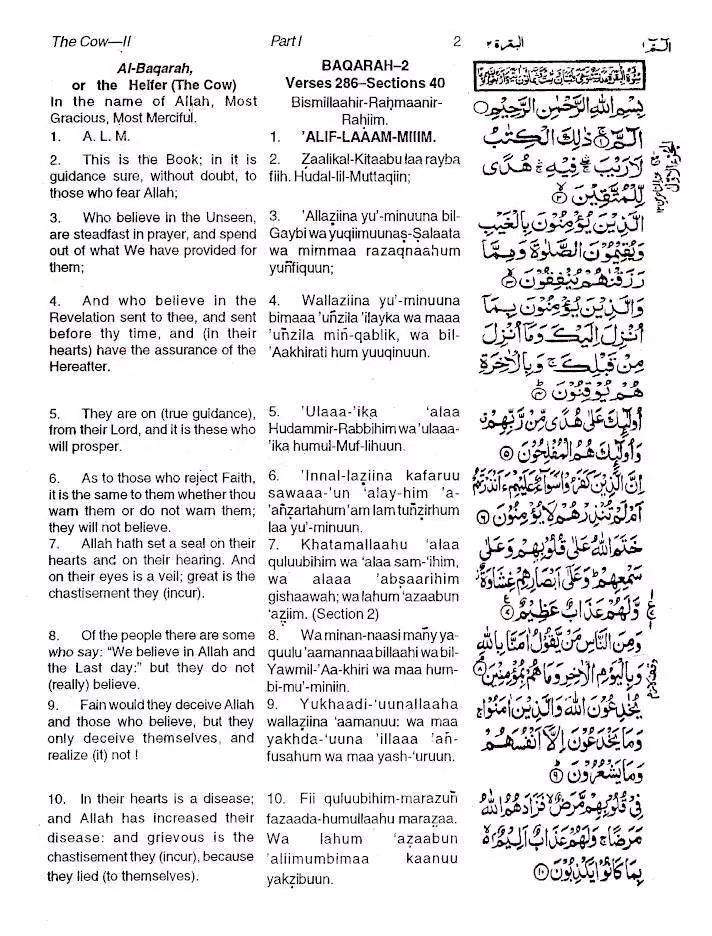 The Cow—II
Part I
2
البقرة ٢
الٓمّٓ ١
Al-Baqarah,
or the Heifer (The Cow)
In the name of Allah, Most
Gracious, Most Merciful.
1. A. L. M.
2. This is the Book; in it is
guidance sure, without doubt, to
those who fear Allah;
3. Who believe in the Unseen,
are steadfast in prayer, and spend
out of what We have provided for
them;
4. And who believe in the
Revelation sent to thee, and sent
before thy time, and (in their
hearts) have the assurance of the
Hereafter.
5. They are on (true guidance),
from their Lord, and it is these who
will prosper.
6. As to those who reject Faith,
it is the same to them whether thou
warn them or do not warn them;
they will not believe.
7. Allah hath set a seal on their
hearts and on their hearing. And
on their eyes is a veil; great is the
chastisement they (incur).
8. Of the people there are some
who say: “We believe in Allah and
the Last day:” but they do not
(really) believe.
9. Fain would they deceive Allah
and those who believe, but they
only deceive themselves, and
realize (it) not !
10. In their hearts is a disease;
and Allah has increased their
disease: and grievous is the
chastisement they (incur), because
they lied (to themselves).
BAQARAH–2
Verses 286–Sections 40
Bismillaahir-Raḥmaanir-
Raḥiim.
1. ’ALIF-LAAAM-MIIIM.
2. Z̤aalikal-Kitaabu laa rayba
fiih. Hudal-lil-Muttaqiin;
3. ’Allaz̤iina yu’-minuuna bil-
Gaybi wa yuqiimuunaṣ-Ṣalaata
wa mimmaa razaqnaahum
yuñfiquun;
4. Wallaz̤iina yu’-minuuna
bimaaa ’uñzila ’ilayka wa maaa
’uñzila miñ-qablik, wa bil-
’Aakhirati hum yuuqinuun.
5. ’Ulaaa-’ika ‘alaa
Hudammir-Rabbihim wa ’ulaaa-
’ika humul-Muf-liḥuun.
6. ’Innal-laz̤iina kafaruu
sawaaa-’un ‘alay-him ’a-
’añz̤artahum ’am lam tuñz̤irhum
laa yu’-minuun.
7. Khatamallaahu ‘alaa
quluubihim wa ‘alaa sam-‘ihim,
wa alaaa ’abṣaarihim
gishaawah; wa lahum ‘az̤aabun
‘aẓiim. (Section 2)
8. Wa minan-naasi mañy ya-
quulu ’aamannaa billaahi wa bil-
Yawmil-’Aa-khiri wa maa hum-
bi-mu’-miniin.
9. Yukhaadi-‘uunallaaha
wallaz̤iina ’aamanuu: wa maa
yakhda-‘uuna ’illaaa ’añ-
fusahum wa maa yash-‘uruun.
10. Fii quluubihim-maraẓuñ
fazaada-humullaahu maraẓaa.
Wa lahum ‘az̤aabun
’aliimumbimaa kaanuu
yakz̤ibuun.
بِسْمِ اللهِ الرَّحْمٰنِ الرَّحِيْمِ
الٓمّٓ ۚ ذٰلِكَ الْكِتٰبُ
لَا رَيْبَ ۛ فِيْهِ ۛ هُدًى
لِّلْمُتَّقِيْنَ ۙ ٢
الَّذِيْنَ يُؤْمِنُوْنَ بِالْغَيْبِ
وَيُقِيْمُوْنَ الصَّلٰوةَ وَمِمَّا
رَزَقْنٰهُمْ يُنْفِقُوْنَ ۙ ٣
وَالَّذِيْنَ يُؤْمِنُوْنَ بِمَآ
اُنْزِلَ اِلَيْكَ وَمَآ اُنْزِلَ
مِنْ قَبْلِكَ ۚ وَبِالْاٰخِرَةِ
هُمْ يُوْقِنُوْنَ ۭ ٤
اُولٰٓئِكَ عَلٰى هُدًى مِّنْ رَّبِّهِمْ ۤ
وَاُولٰٓئِكَ هُمُ الْمُفْلِحُوْنَ ٥
اِنَّ الَّذِيْنَ كَفَرُوْا سَوَآءٌ عَلَيْهِمْ ءَاَنْذَرْتَهُمْ
اَمْ لَمْ تُنْذِرْهُمْ لَا يُؤْمِنُوْنَ ٦
خَتَمَ اللهُ عَلٰى قُلُوْبِهِمْ وَعَلٰى
سَمْعِهِمْ ۭ وَعَلٰٓى اَبْصَارِهِمْ غِشَاوَةٌ ۡ
وَّلَهُمْ عَذَابٌ عَظِيْمٌ ٧
وَمِنَ النَّاسِ مَنْ يَّقُوْلُ اٰمَنَّا بِاللهِ
وَبِالْيَوْمِ الْاٰخِرِ وَمَا هُمْ بِمُؤْمِنِيْنَ ٨
يُخٰدِعُوْنَ اللهَ وَالَّذِيْنَ اٰمَنُوْا ۚ
وَمَا يَخْدَعُوْنَ اِلَّآ اَنْفُسَهُمْ
وَمَا يَشْعُرُوْنَ ٩
فِيْ قُلُوْبِهِمْ مَّرَضٌ ۙ فَزَادَهُمُ اللهُ
مَرَضًا ۚ وَلَهُمْ عَذَابٌ اَلِيْمٌۢ ۙ
بِمَا كَانُوْا يَكْذِبُوْنَ ١٠